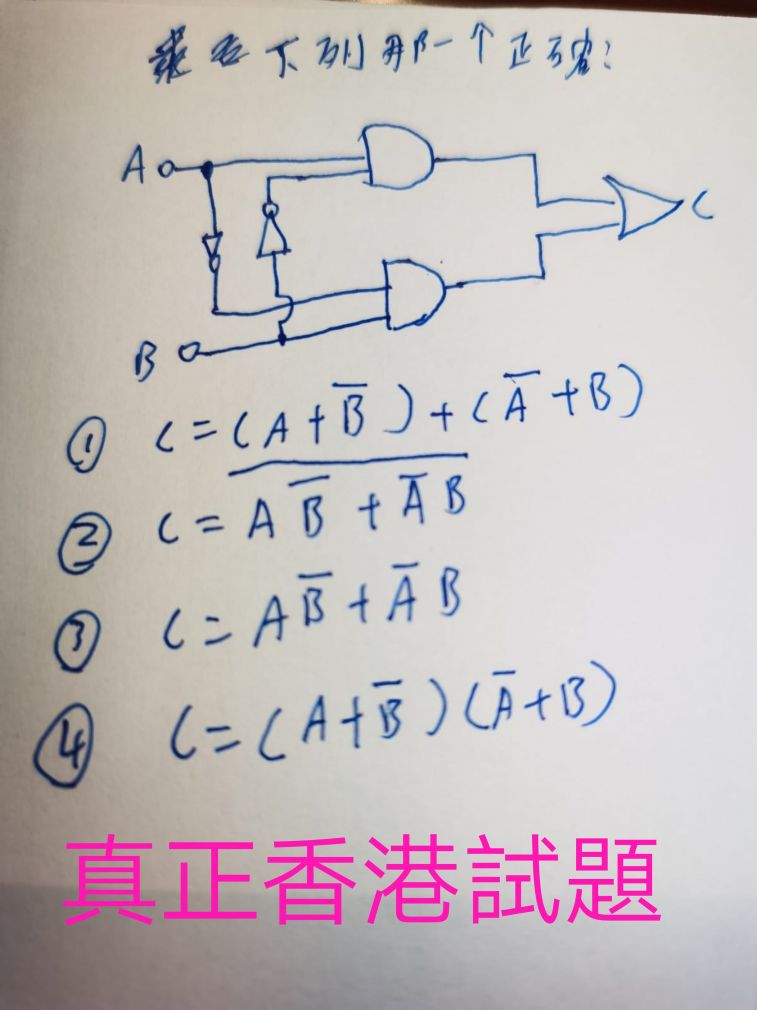 下列那一个正确?
A
C
B
① C = (A + B̅) + (A̅ + B)
② C = A̅ ̅B̿ ̅+̅ ̅A̿ ̅B̅
③ C = A B̅ + A̅ B
④ C = (A + B̅) (A̅ + B)
真正香港試題